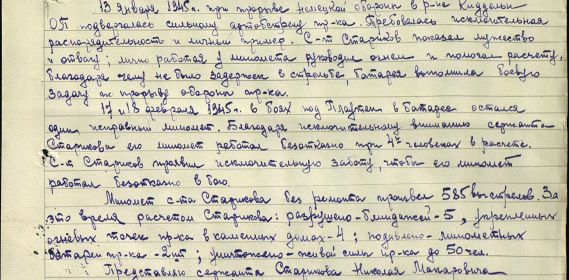 13 января 1945г. при прорыве немецкой обороны в р-не Куддолн
ОП подвергалась сильному артобстрелу пр-ка. Требовалась исключительная
распорядительность и личный пример. С-т Стариков показал мужество
и отвагу; лично работая у миномета руководил огнем и помогал расчету,
благодаря чему не было задержек в стрельбе, батарея выполнила боевую
задачу по прорыву обороны пр-ка.
17 и 18 февраля 1945г. в боях под Плаутен в батарее остался
один исправный миномет. Благодаря исключительному вниманию сержанта
Старикова его миномет работал безотказно при 4х человеках в расчете.
С-т Стариков проявил исключительную заботу, чтобы его миномет
работал безотказно в бою.
Миномет с-та Старикова без ремонта произвел 585 выстрелов. За
это время расчетом Старикова: разрушено - блиндажей - 5, укрепленных
огневых точек пр-ка в каменных домах - 4; подавлено - минометных
батареи пр-ка - 2 шт; уничтожено - живой силы пр-ка до 50 чел.
Представляю сержанта Старикова Николая Макаровича